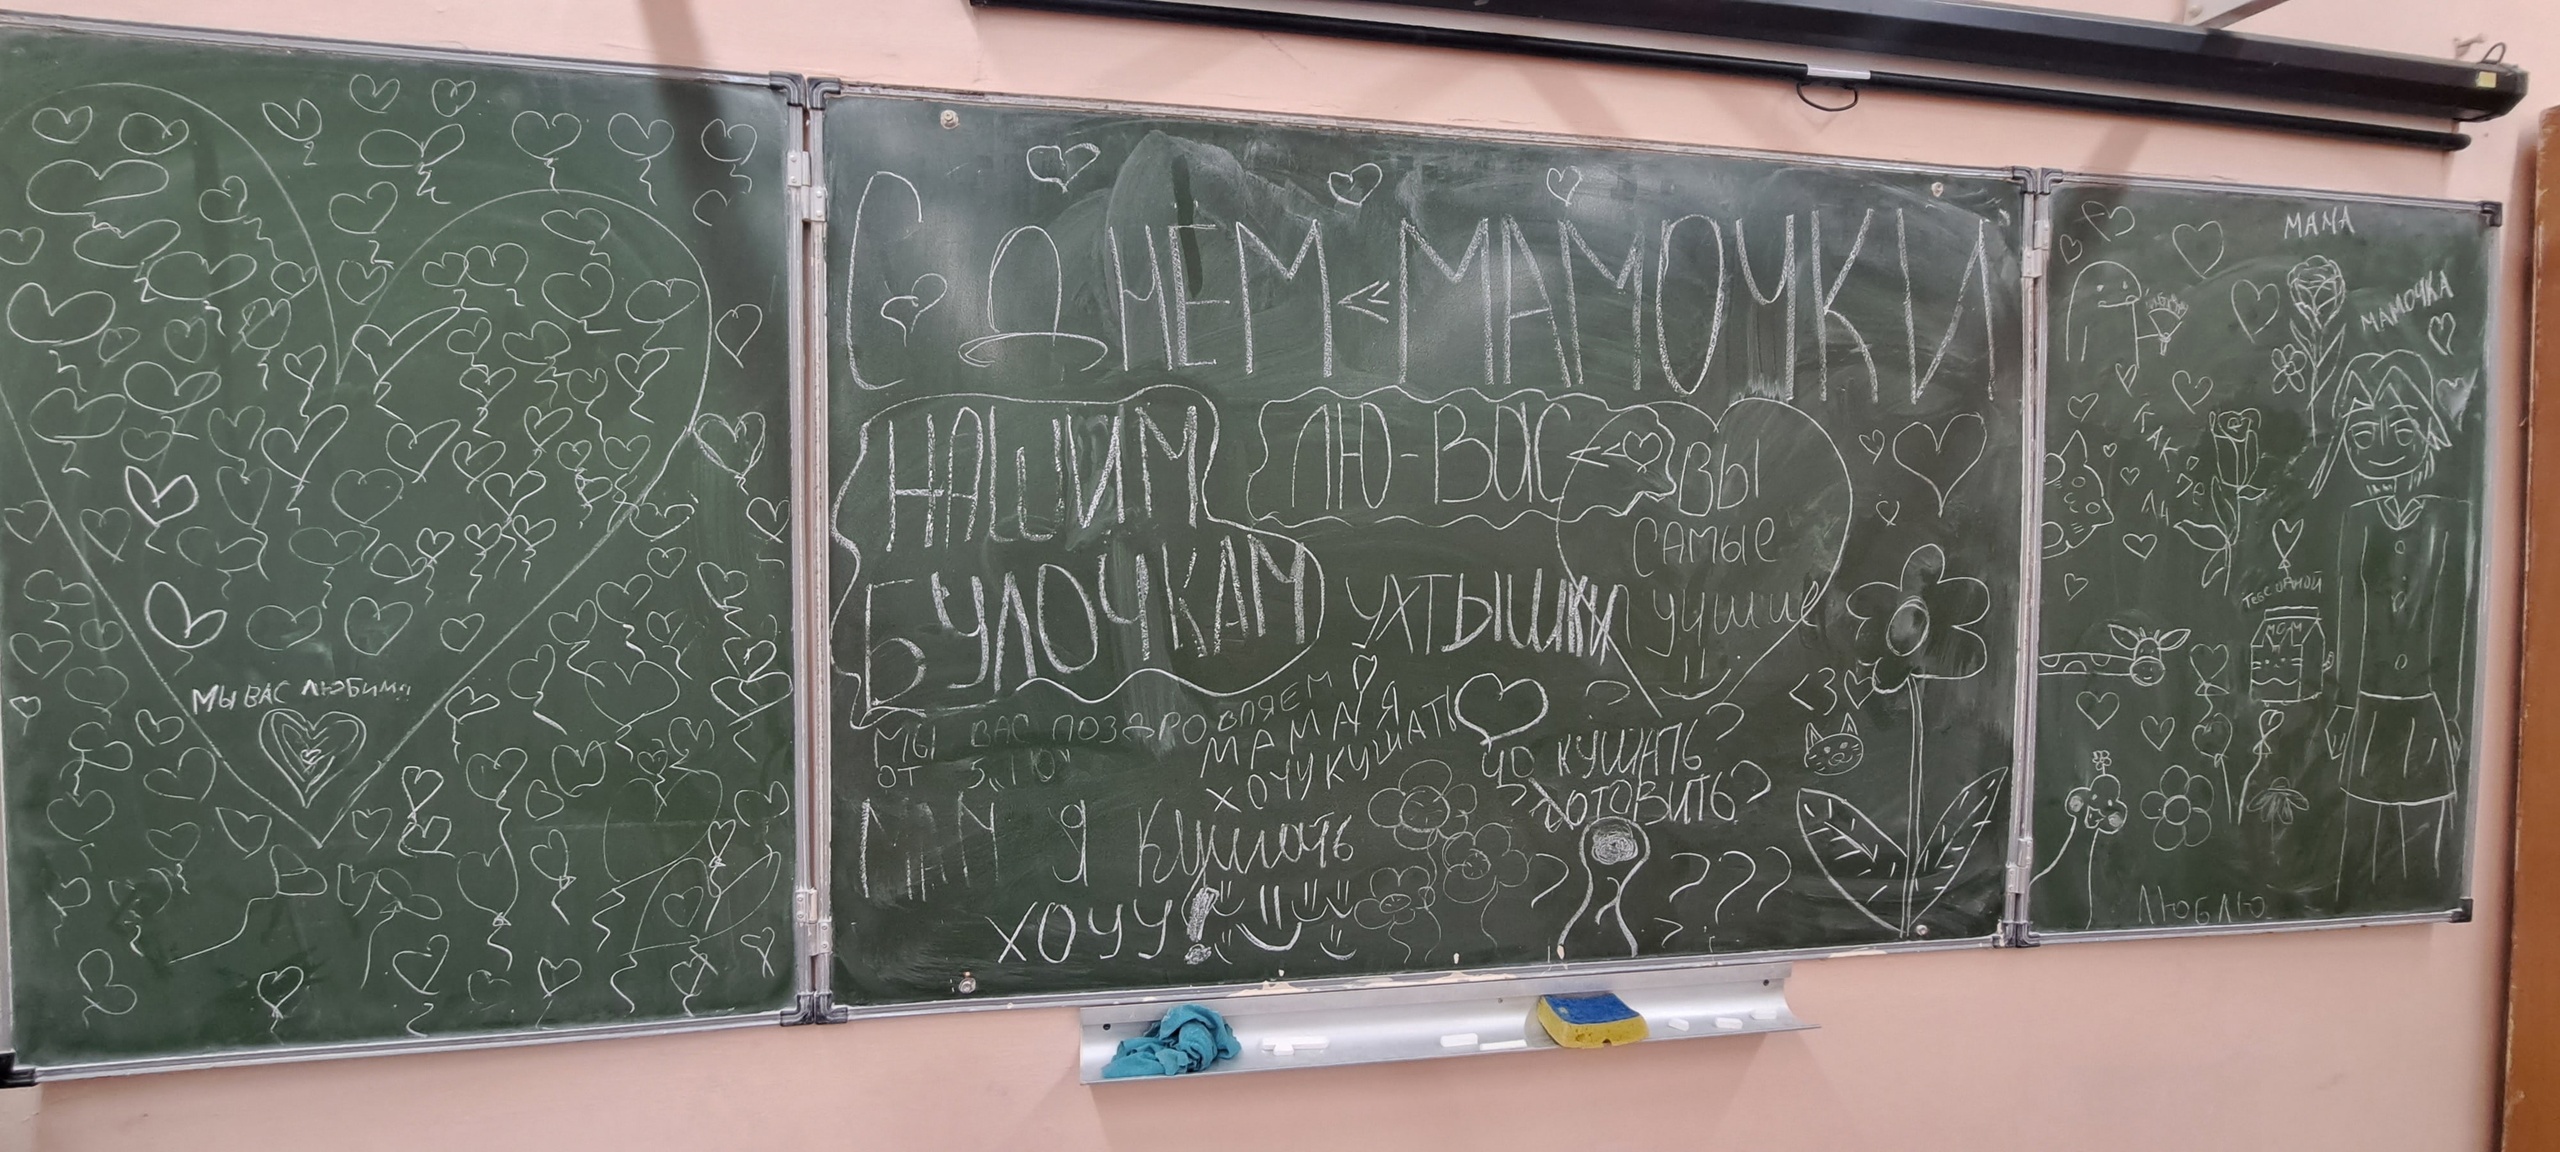 МЫ ВАС ЛЮБИМ
С ДНЕМ МАМОЧКИ
НАШИМ
БУЛОЧКАМ
ЛЮ-ВАС
ВЫ
САМЫЕ
лучшие
УХТЫШКА
МЫ ВАС ПОЗДРОВЛЯЕМ
ОТ 5 "О"
МАМА Я
ХОЧУ КУШАТЬ
ЧО КУШАТЬ?
ГОТОВИТЬ?
МАМ Я Кушать
ХОЧУ!
???
<3
МАМА
МАМОЧКА
КАК
MOM
ЛЮБЛЮ